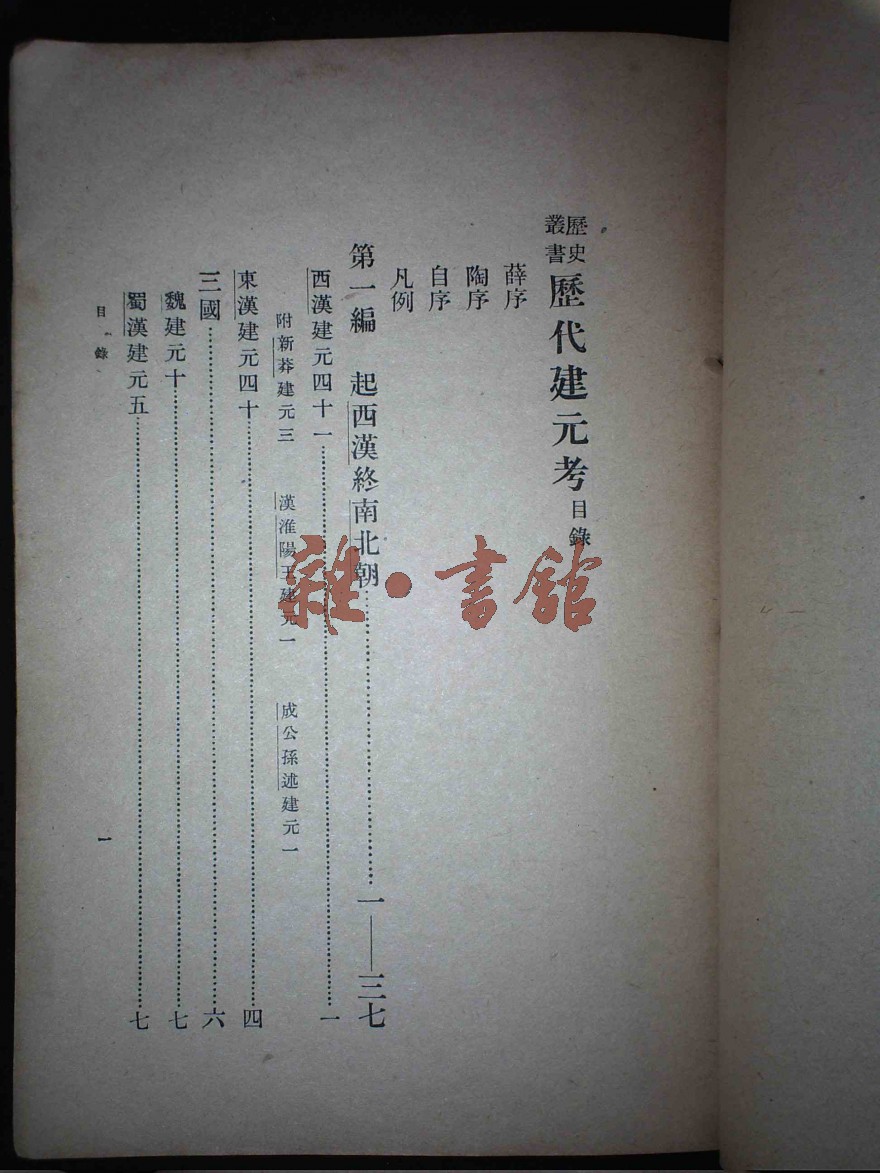 歷史叢書 歷代建元考 目錄
薛序
陶序
自序
凡例
第一編 起西漢終南北朝……一——三七
西漢建元四十一……一
附新莽建元三 漢淮陽王建元一 成公孫述建元一
東漢建元四十……四
三國……六
魏建元十……七
蜀漢建元五……七
目錄 一
雜·書館